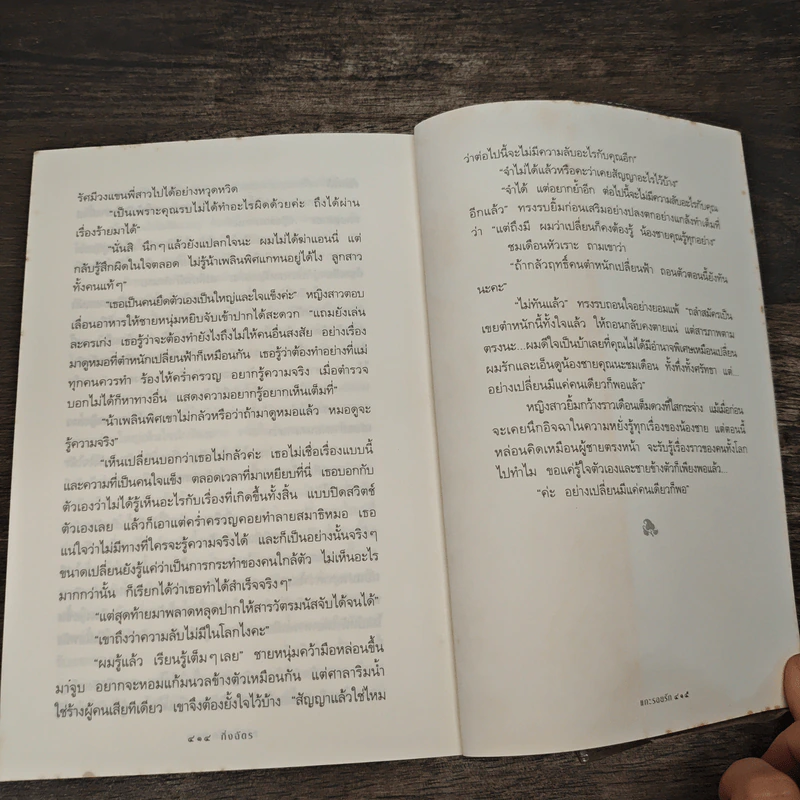 รัศมีวงแขนพี่สาวไปได้อย่างหวุดหวิด
"เป็นเพราะคุณรบไม่ได้ทำอะไรผิดด้วยค่ะ ถึงได้ผ่าน
เรื่องร้ายมาได้"
"นั่นสิ นึกๆแล้วยังแปลกใจนะ ผมไม่ได้ฆ่าแอนนี่ แต่
กลับรู้สึกผิดในใจตลอด ไม่รู้น้าเพลินพิศแกทนอยู่ได้ไง ลูกสาว
ทั้งคนแท้ๆ"
"เธอเป็นคนยึดตัวเองเป็นใหญ่และใจแข็งค่ะ" หญิงสาวตอบ
เลื่อนอาหารให้ชายหนุ่มหยิบจับเข้าปากได้สะดวก "แถมยังเล่น
ละครเก่ง เธอรู้ว่าจะต้องทำยังไงถึงไม่ให้คนอื่นสงสัย อย่างเรื่อง
มาดูหมอที่ตำหนักเปลี่ยนฟ้าก็เหมือนกัน เธอรู้ว่าต้องทำอย่างที่แม่
ทุกคนควรทำ ร้องไห้คร่ำครวญ อยากรู้ความจริง เมื่อตำรวจ
บอกไม่ได้ก็หาทางอื่น แสดงความอยากรู้อยากเห็นเต็มที่"
"น้าเพลินพิศเขาไม่กลัวหรือว่าถ้ามาดูหมอแล้ว หมอดูจะ
รู้ความจริง"
"เห็นเปลี่ยนบอกว่าเธอไม่กลัวค่ะ เธอไม่เชื่อเรื่องแบบนี้
และความที่เป็นคนใจแข็ง ตลอดเวลาที่มาเหยียบที่นี่ เธอบอกกับ
ตัวเองว่าไม่ได้รู้เห็นอะไรกับเรื่องที่เกิดขึ้นทั้งสิ้น แบบปิดสวิตช์
ตัวเองเลย แล้วก็เอาแต่คร่ำครวญคอยทำลายสมาธิหมอ เธอ
แน่ใจว่าไม่มีทางที่ใครจะรู้ความจริงได้ และก็เป็นอย่างนั้นจริงๆ
ขนาดเปลี่ยนยังรู้แค่ว่าเป็นการกระทำของคนใกล้ตัว ไม่เห็นอะไร
มากกว่านั้น ก็เรียกได้ว่าเธอทำได้สำเร็จจริงๆ"
"แต่สุดท้ายมาพลาดหลุดปากให้สารวัตรมนัสจับได้จนได้"
"เขาถึงว่าความลับไม่มีในโลกไงคะ"
"ผมรู้แล้ว เรียนรู้เต็มๆเลย" ชายหนุ่มคว้ามือหล่อนขึ้น
มาจูบ อยากจะหอมแก้มนวลข้างตัวเหมือนกัน แต่ศาลาริมน้ำ
ใช่ร้างผู้คนเสียทีเดียว เขาจึงต้องยั้งใจไว้บ้าง "สัญญาแล้วใช่ไหม
๔๑๔ กิ่งฉัตร
ว่าต่อไปนี้จะไม่มีความลับอะไรกับคุณอีก"
"จำไม่ได้แล้วหรือคะว่าเคยสัญญาอะไรไว้บ้าง"
"จำได้ แต่อยากย้ำอีก ต่อไปนี้จะไม่มีความลับอะไรกับคุณ
อีกแล้ว" ทรงรบยิ้มก่อนเสริมอย่างปลงตกอย่างแกล้งทำเต็มที่
ว่า "แต่ถึงมี ผมว่าเปลี่ยนก็คงต้องรู้ น้องชายคุณรู้ทุกอย่าง"
ชมเดือนหัวเราะ ถามเขาว่า
"ถ้ากลัวฤทธิ์คนตำหนักเปลี่ยนฟ้า ถอนตัวตอนนี้ยังทัน
นะคะ"
"ไม่ทันแล้ว" ทรงรบถอนใจอย่างยอมแพ้ "ถลำสมัครเป็น
เขยตำหนักนี้ทั้งใจแล้ว ให้ถอนกลับคงตายแน่ แต่สารภาพตาม
ตรงนะ...ผมดีใจเป็นบ้าเลยที่คุณไม่ได้มีอำนาจพิเศษเหมือนเปลี่ยน
ผมรักและเอ็นดูน้องชายคุณนะชมเดือน ทั้งทึ่งทั้งศรัทธา แต่...
อย่างเปลี่ยนมีแค่คนเดียวก็พอแล้ว"
หญิงสาวยิ้มกว้างราวเดือนเต็มดวงที่ใสกระจ่าง แม้เมื่อก่อน
จะเคยนึกอิจฉาในความหยั่งรู้ทุกเรื่องของน้องชาย แต่ตอนนี้
หล่อนคิดเหมือนผู้ชายตรงหน้า จะรับรู้เรื่องราวของคนทั้งโลก
ไปทำไม ขอแค่รู้ใจตัวเองและชายข้างตัวก็เพียงพอแล้ว...
"ค่ะ อย่างเปลี่ยนมีแค่คนเดียวก็พอ"
๔๑๕